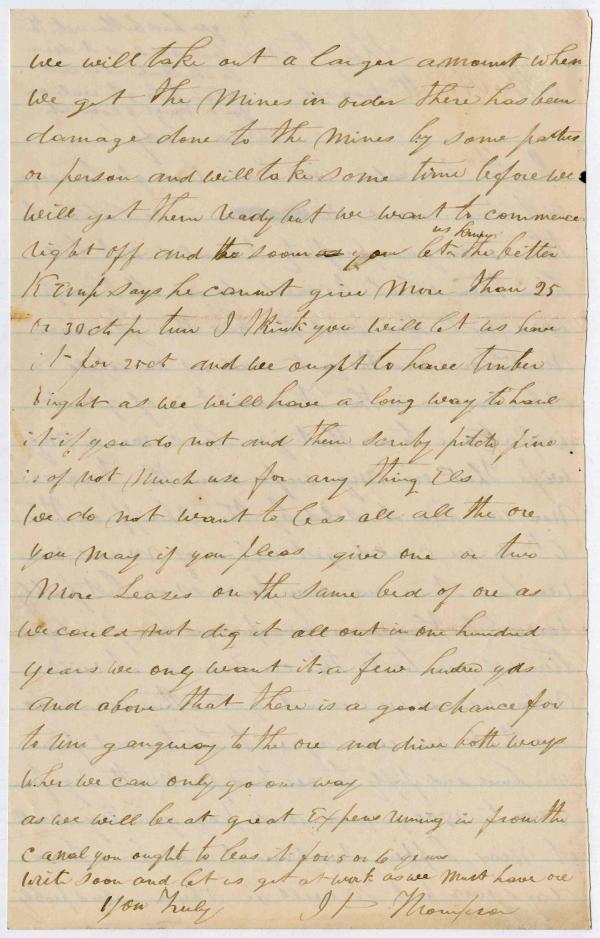 we will take out a larger amount when
we get the Mines in order there has been
damage done to the Mines by some parties
or person and will take some time before we
will get them ready but we want to commence
right off and the soon as you let us know the better
Kemp says he cannot give More than 25
or 30 cts pr tun I think you will let us have
it for 25ct and we ought to have timber
right as we will have a long way to haul
it if you do not and them scruby pitch pine
is of not Much use for any thing Els
We do not want to leas all all the ore
you May if you pleas give one or two
More Leases on the same bed of ore as
we could not dig it all out in one hundred
years we only want it a few hundred yds
and above that there is a good chance for
to run gangway to the ore and drive both ways
wher we can only go on way
as we will be at great Expens runing in from the
canal you ought to leas it for 5 or 6 years
write soon and let us get at work as we Must have ore
Your Truly J Thompson